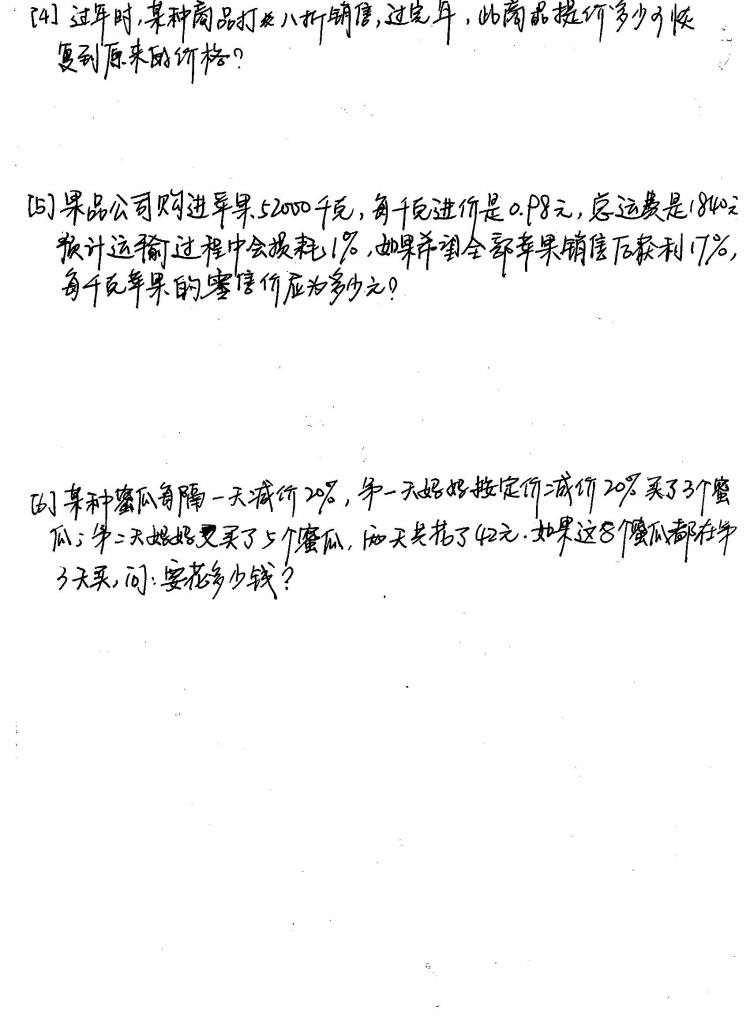 [4] 过年时,某种商品打八折销售,过完年,此商品提价多少可恢
复到原来的价格?
[5] 果品公司购进苹果52000千克,每千克进价是0.98元,总运费是1840元
预计运输过程中会损耗1%,如果希望全部苹果销售后获利17%,
每千克苹果的零售价应为多少元?
[6] 某种蜜瓜每隔一天减价20%,第一天妈妈按定价减价20%买了3个蜜
瓜;第二天妈妈又买了5个蜜瓜,两天共花了42元.如果这8个蜜瓜都在第
3天买,问:要花多少钱?